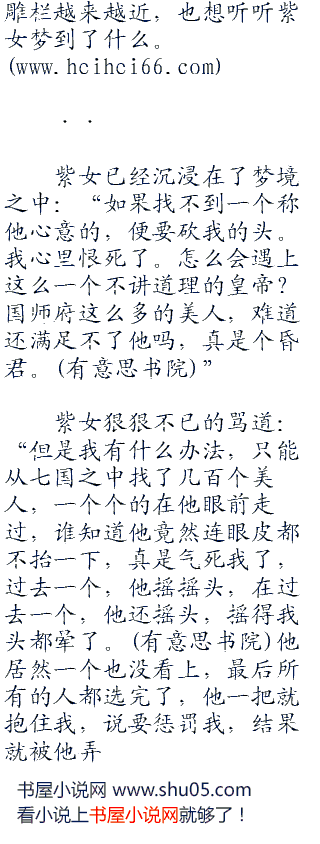 雕栏越来越近，也想听听紫
女梦到了什么。
(www.hcihci66.com)
．．
紫女已经沉浸在了梦境
之中：“如果找不到一个称
他心意的，便要砍我的头。
我心里恨死了。怎么会遇上
这么一个不讲道理的皇帝？
国师府这么多的美人，难道
还满足不了他吗，真是个昏
君。(有意思书院)”
紫女狠狠不已的骂道：
“但是我有什么办法，只能
从七国之中找了几百个美
人，一个个的在他眼前走
过，谁知道他竟然连眼皮都
不抬一下，真是气死我了，
过去一个，他摇摇头，在过
去一个，他还摇头，摇得我
头都晕了。(有意思书院)他
居然一个也没看上，最后所
有的人都选完了，他一把就
抱住我，说要惩罚我，结果
就被他弄
书屋小说网 www.shu05.com
看小说上书屋小说网就够了！